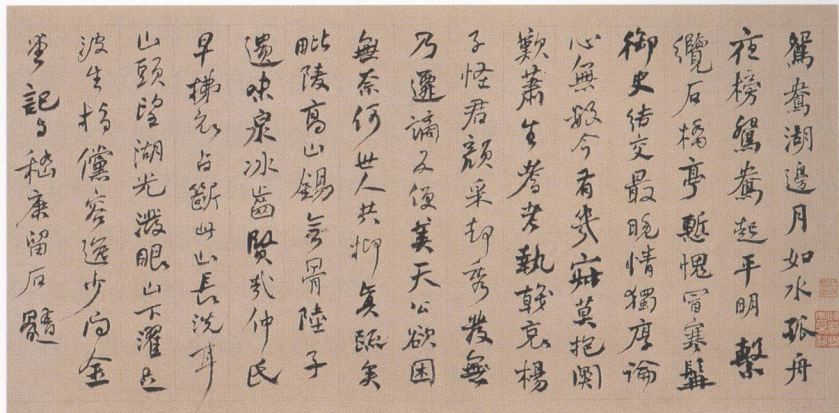 鴛鴦湖邊月如水孤舟
夜榜鴛鴦起平明繫
纜石橋亭慙愧冒寒髯
御史結交最晚情獨厚論
心無數今有幾寂莫抱関
歎蕭生耆老執戟哀楊
子怪君顏采却秀發無
乃遷謫反便美天公欲困
無奈何世人共抑真踈矣
毗陵高山錫無骨陸子
遺味泉冰齒賢哉仲氏
早拂衣占斷此山長洗耳
山頭望湖光潑眼山下濯足
波生指儻容逸少問金
堂記与嵇康留石髓